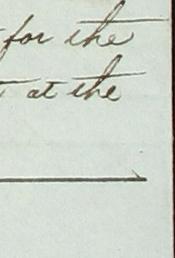 for the
at the